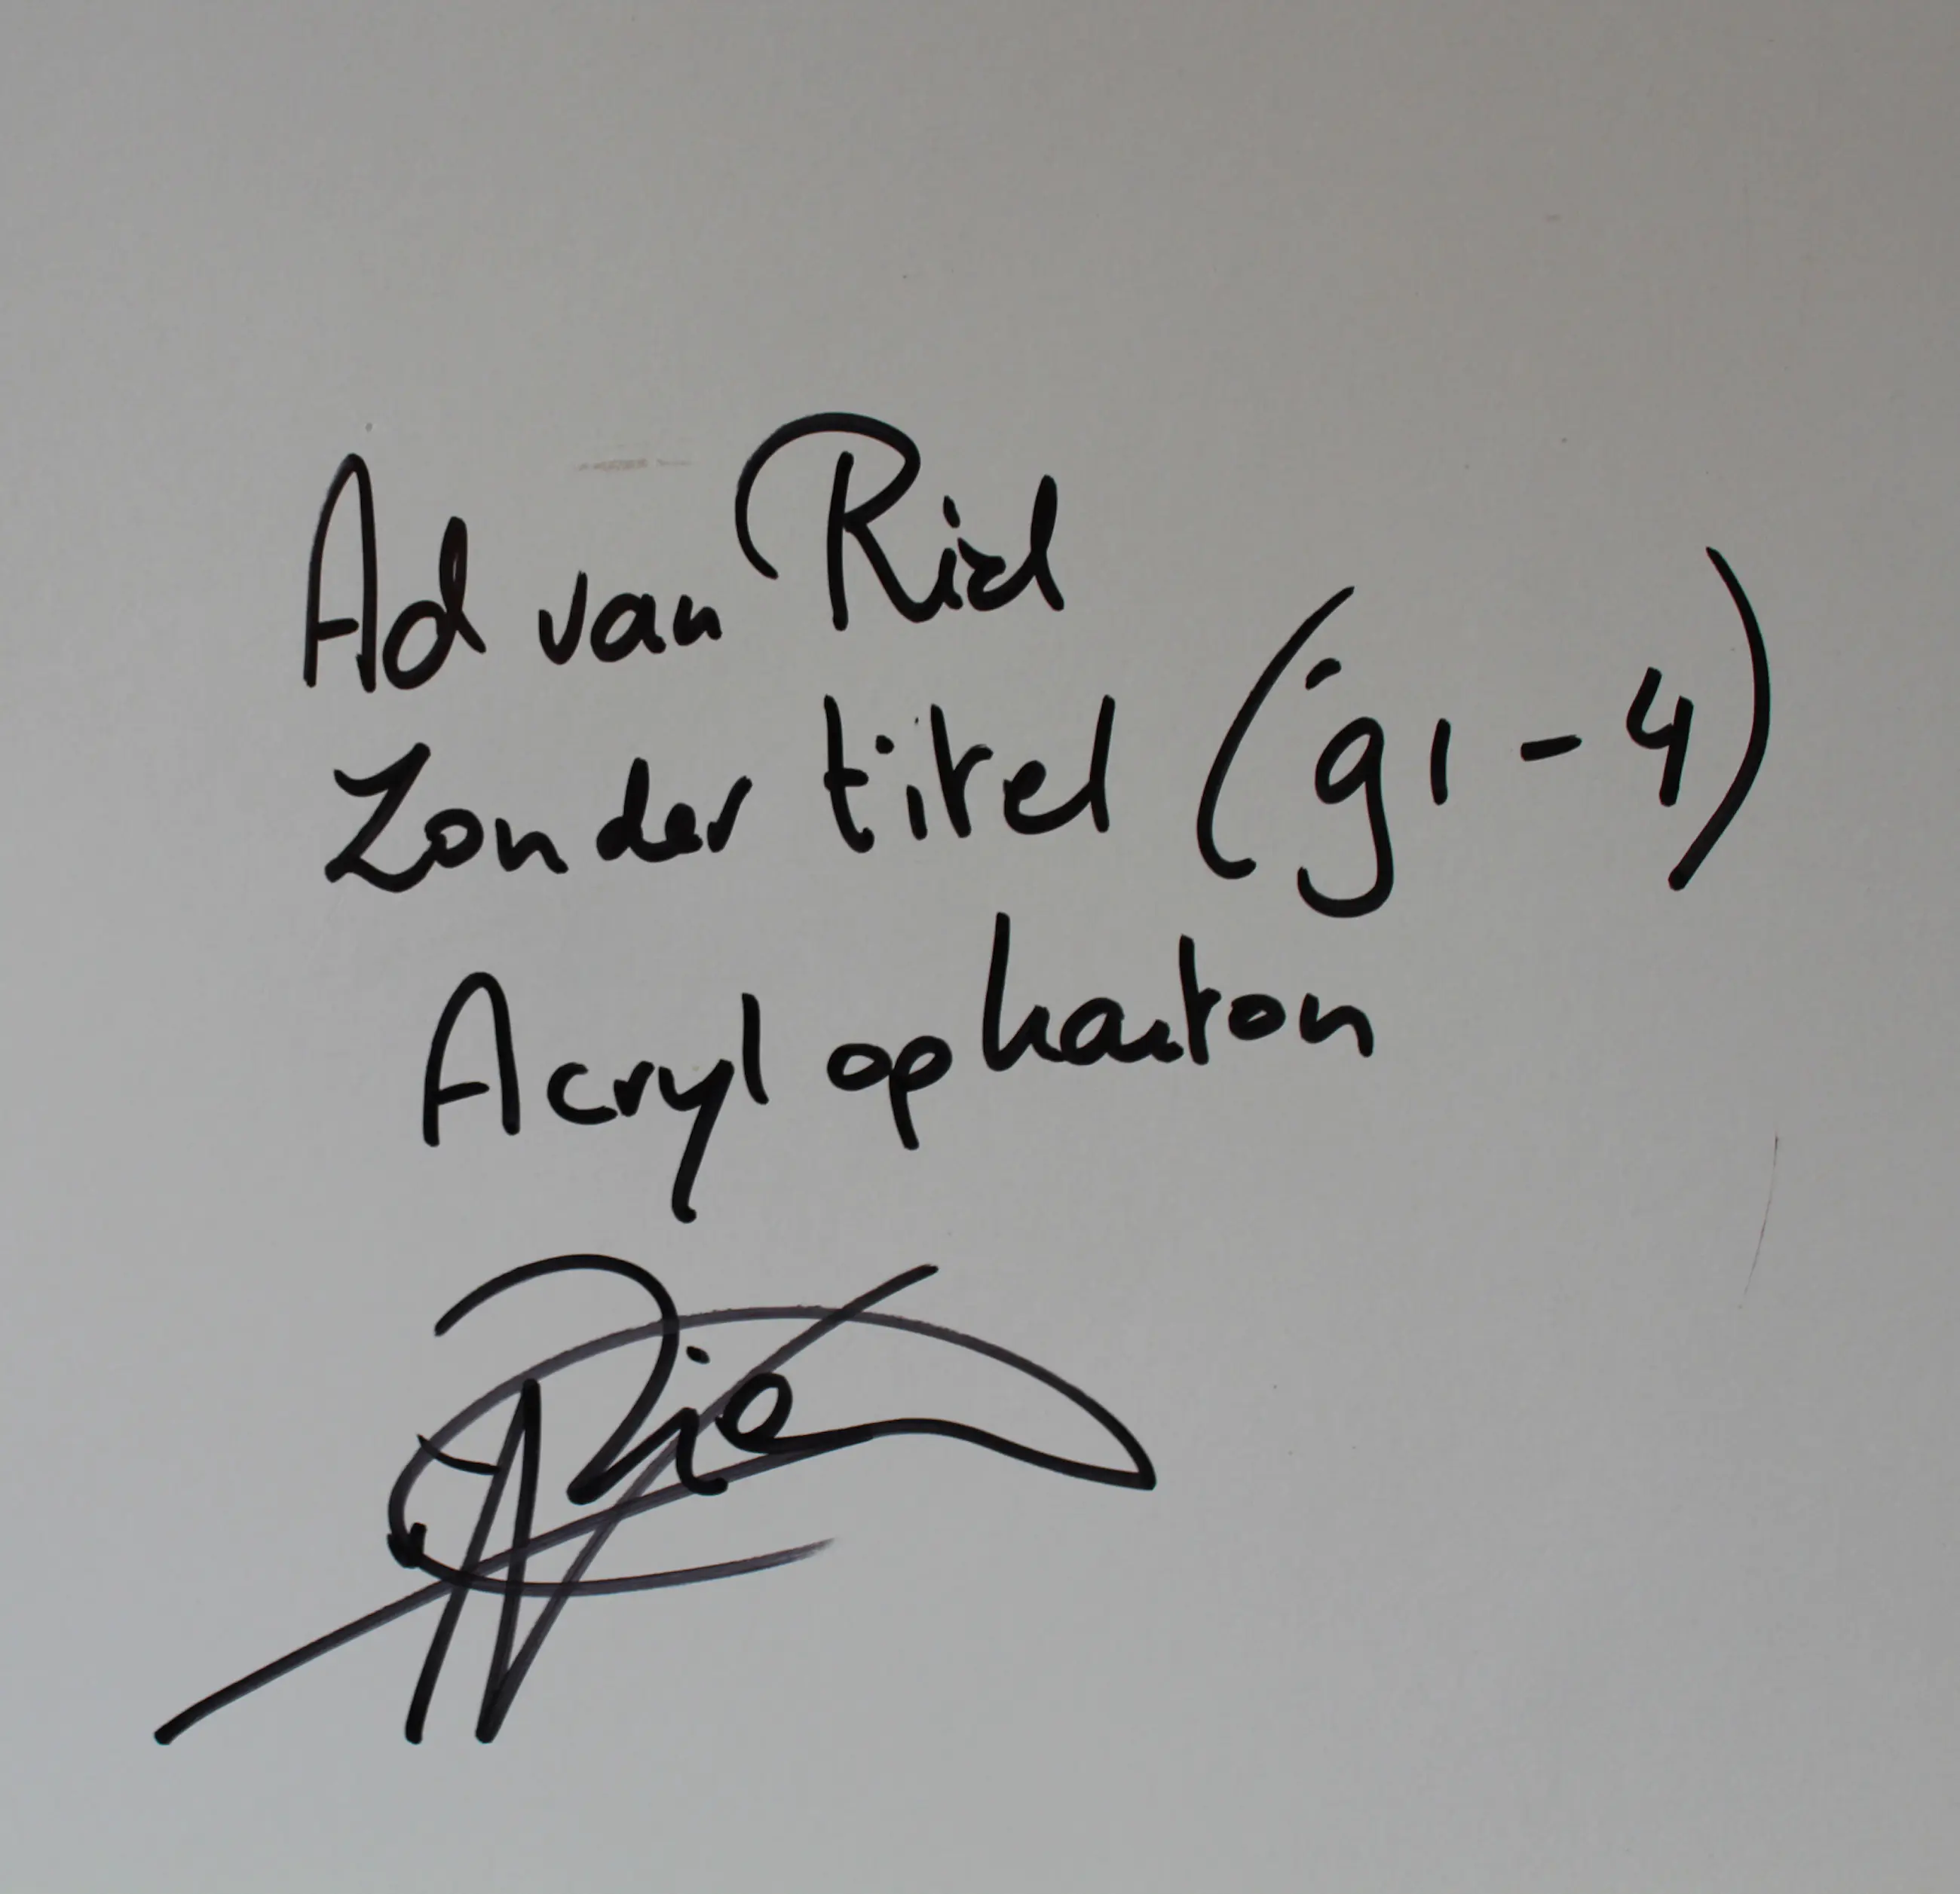 Ad van Riel
Zonder titel ('91-4)
Acryl op karton